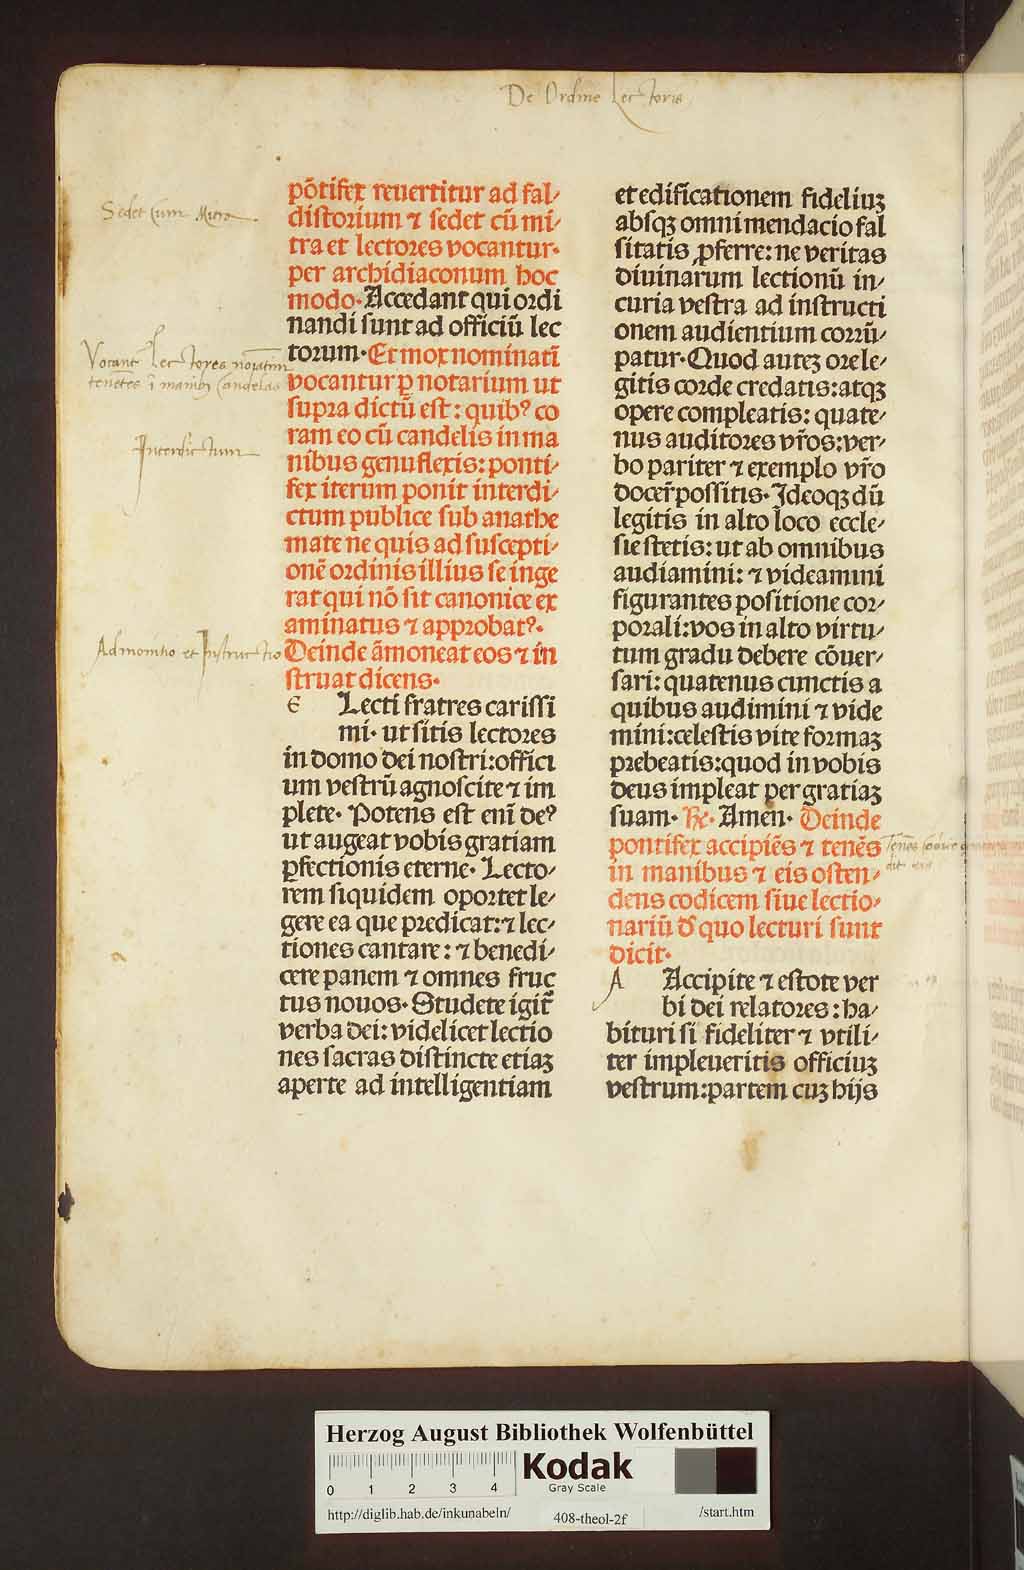 De Ordine Lectoris
Sedet cum Mitra
põtifex reuertitur ad fal⸗
distorium ⁊ sedet cũ mi⸗
tra et lectores vocantur·
per archidiaconum hoc
modo· Accedant qui ordi
nandi sunt ad officiũ lec
torum· Et mox nominatĩ
vocantur ꝑ notarium ut
supra dictũ est: quibꝰ co
ram eo cũ candelis in ma
nibus genuflexis: ponti⸗
fex iterum ponit interdi⸗
ctum publice sub anathe
mate ne quis ad suscepti⸗
onẽ ordinis illius se inge
rat qui nõ sit canonice ex
aminatus ⁊ approbatꝰ·
Deinde ãmoneat eos ⁊ in
struat dicens·
Vocant Lectores noĩatim
tenẽtes ĩ manibȝ candelas
Interdictum
Admonitio et Instructio
e Lecti fratres carissi
mi· ut sitis lectores
in domo dei nostri: offici
um vestrũ agnoscite ⁊ im
plete· Potens est enĩ deꝰ
ut augeat vobis gratiam
ꝑfectionis eterne· Lecto⸗
rem siquidem oportet le⸗
gere ea que predicat: ⁊ lec⸗
tiones cantare: ⁊ benedi⸗
cere panem ⁊ omnes fruc
tus nouos· Studete igit̃
verba dei: videlicet lectio
nes sacras distincte etiaȝ
aperte ad intelligentiam
et edificationem fideliuȝ
absqȝ omni mendacio fal
sitatis ꝓferre: ne veritas
diuinarum lectionũ in⸗
curia vestra ad instructi
onem audientium corrũ⸗
patur· Quod auteȝ ore le⸗
gitis corde credatis: atqȝ
opere compleatis: quate⸗
nus auditores vr̃os: ver⸗
bo pariter ⁊ exemplo vr̃o
docer̃ possitis· Ideoqȝ dũ
legitis in alto loco eccle⸗
sie stetis: ut ab omnibus
audiamini: ⁊ videamini
figurantes positione cor⸗
porali: vos in alto virtu⸗
tum gradu debere cõuer⸗
sari: quatenus cunctis a
quibus audimini ⁊ vide
mini: celestis vite formaȝ
prebeatis: quod in vobis
deus impleat per gratiaȝ
suam· ℞· Amen· Deinde
pontifex accipiẽs ⁊ tenẽs
in manibus ⁊ eis osten⸗
dens codicem siue lectio⸗
nariũ đ quo lecturi sunt
dicit·
A Accipite ⁊ estote ver
bi dei relatores: ha⸗
bituri si fideliter ⁊ vtili⸗
ter impleueritis officiuȝ
vestrum: partem cuȝ hijs
Herzog August Bibliothek Wolfenbüttel
0 1 2 3 4
Kodak
Gray Scale
http://diglib.hab.de/inkunabeln/ 408-theol-2f /start.htm